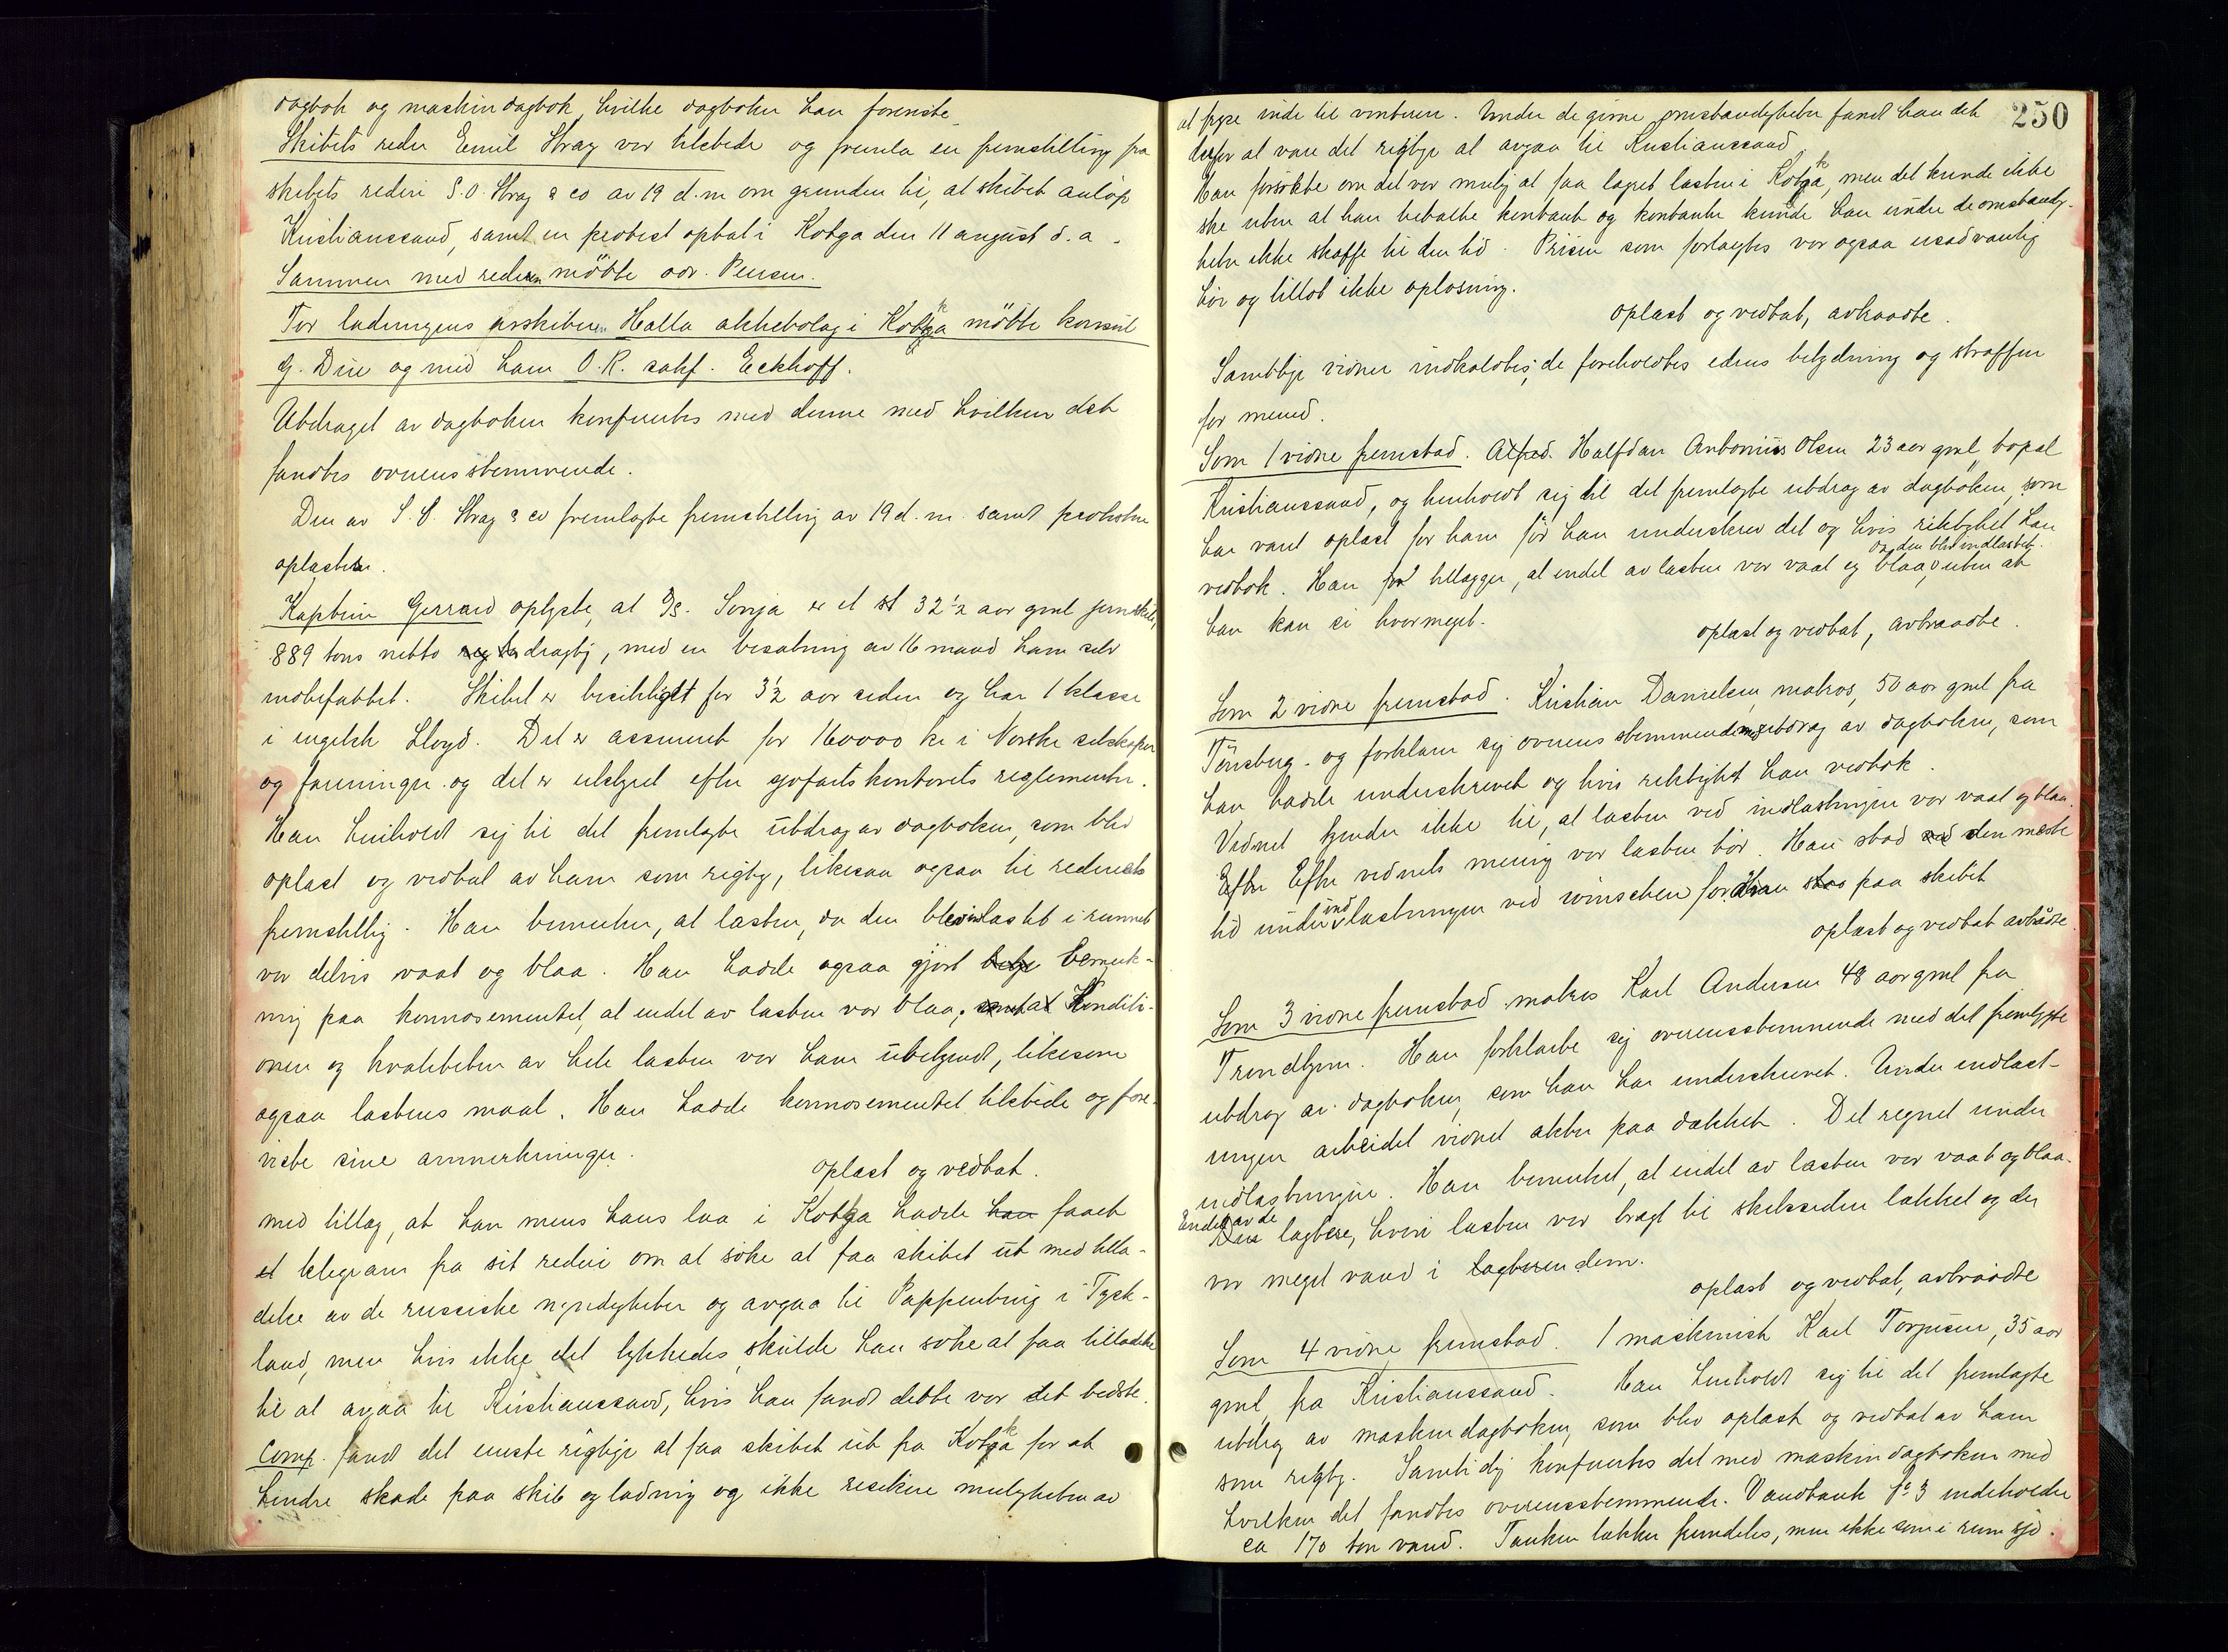 dagbok og maskindagbok hvilke dagbøker han foreviste
Skibets reder Emil Stray var tilstede og fremla en fremstilling fra
skibets rederi S.O. Stray & co av 19 d.m om grunden til, at skibet anløp
Kristianssand, samt en protest optat i Kotka den 11 august d.a.
Sammen med rederen møtte adv. Pensen.
For ladningens avskibere Halla aktiebolag i Kotka møtte konsul
G. Due og med ham O.R. sakf. Eckhoff.
Utdraget av dagboken konfertes med denne med hvilken det
fandtes overensstemmende.
Den av S.O. Stray & co fremlagte fremstilling av 19 d.m. samt protesten
oplæstes.
Kaptein Gerrard oplyste, at D/S. Sonja er et st 32 1/2 aar gml jernskib,
889 tons netto drægtig, med en besætning av 16 mand ham selv
indbefattet. Skibet er besiktiget for 3 1/2 aar siden og har 1 klasse
i engelsk Lloyd. Det er assureret for 160000 kr i Norske selskaper
og foreninger og det er utstyret efter sjøfartskontorets reglementer.
Han henholdt sig til det fremlagte utdrag av dagboken, som blev
oplæst og vedtat av ham som rigtig, likesaa ogsaa til rederiets
fremstillig. Han bemerker, at lasten, da den blev indlastet i rummet
var delvis vaat og blaa. Han hadde ogsaa gjort bemerk-
ning paa konnosementet, at endel av lasten var blaa, samt at Konditi-
onen og kvaliteten av hele lasten var ham ubekjendt, likesom
ogsaa lastens maal. Han hadde konnosementet tilstede og fore-
viste sine anmerkninger.
oplæst og vedtat.
med tillæg, at han mens hans laa i Kotka hadde han faaet
et telegram fra sit rederi om at søke at faa skibet ut med tilla-
delse av de russiske myndigheter og avgaa til Pappenburg i Tysk-
land, men hvis ikke det lykkedes skulde han søke at faa tilladelse
til at avgaa til Kristianssand, hvis han fandt dette var det bedste.
Comp. fandt det eneste rigtige at faa skibet ut fra Kotka for at
hindre skade paa skib og ladning og ikke resikere muligheten av
250
at fryse inde til vinteren. Under de givne omstændigheter fandt han det
derfor at være det rigtige at avgaa til Kristianssand.
Han forsøkte om det var mulig at faa lagret lasten i Kotka, men det kunde ikke
ske uten at han betalte kontant og kontanter kunde han under de omstændig-
heter ikke skaffe til den tid. Prisen som forlangtes var ogsaa usædvanlig
høi og tillot ikke oplosning.
oplæst og vedtat, avtraadte.
Samtlige vidner indkaldtes, de foreholdtes edens betydning og straffen
for mened.
Som 1 vidne fremstod. Alfred Halfdan Antonius Olsen 23 aar gml, bopæl
Kristianssand, og henholdt sig til det fremlagte utdrag av dagboken, som
har været oplæst for ham før han underskrev det og hvis riktighet han
da den blev indlastet.
vedtok. Han tillægger, at endel av lasten var vaat og blaa, uten at
han kan si hvormeget.
oplæst og vedtat, avtraadte.
Som 2 vidne fremstod. Kristian Danielsen, matros, 50 aar gml fra
Tønsberg. og forklarer sig overensstemmende med utdrag av dagboken, som
han hadde underskrevet og hvis riktighet han vedtok.
Vidnet kjender ikke til, at lasten ved indlastningen var vaat og blaa.
Efter Efter vidnets mening var lasten tør. Han stod ved den meste
tid under indlastningen ved winschen forut paa skibet
oplæst og vedtat avtrådte.
Som 3 vidne fremstod matros Karl Andersen 48 aar gml fra
Trondhjem. Han forklarte sig overensstemmende med det fremlagte
utdrag av dagboken, som han har underskrevet. Under indlast-
ningen arbeidet vidnet akter paa dækket. Det regnet under
indlastningen. Han bemerket, at endel av lasten var vaat og blaa.
Endel av de
Den lagtere, hvori lasten var bragt til skibssiden lækket og der
var meget vand i lagteren dem.
oplæst og vedtat, avtraadte
Som 4 vidne fremstod. 1 maskinist Karl Torjusen, 35 aar
gml, fra Kristianssand. Han henholdt sig til det fremlagte
utdrag av maskindagboken, som blev oplæst og vedtat av ham
som rigtig. Samtidig konfertes det med maskindagboken med
hvilken det fandtes overensstemmende. Vandtank No 3 indeholder
ca 170 ton vand. Tanken lækker fremdeles, men ikke som i rum sjø.